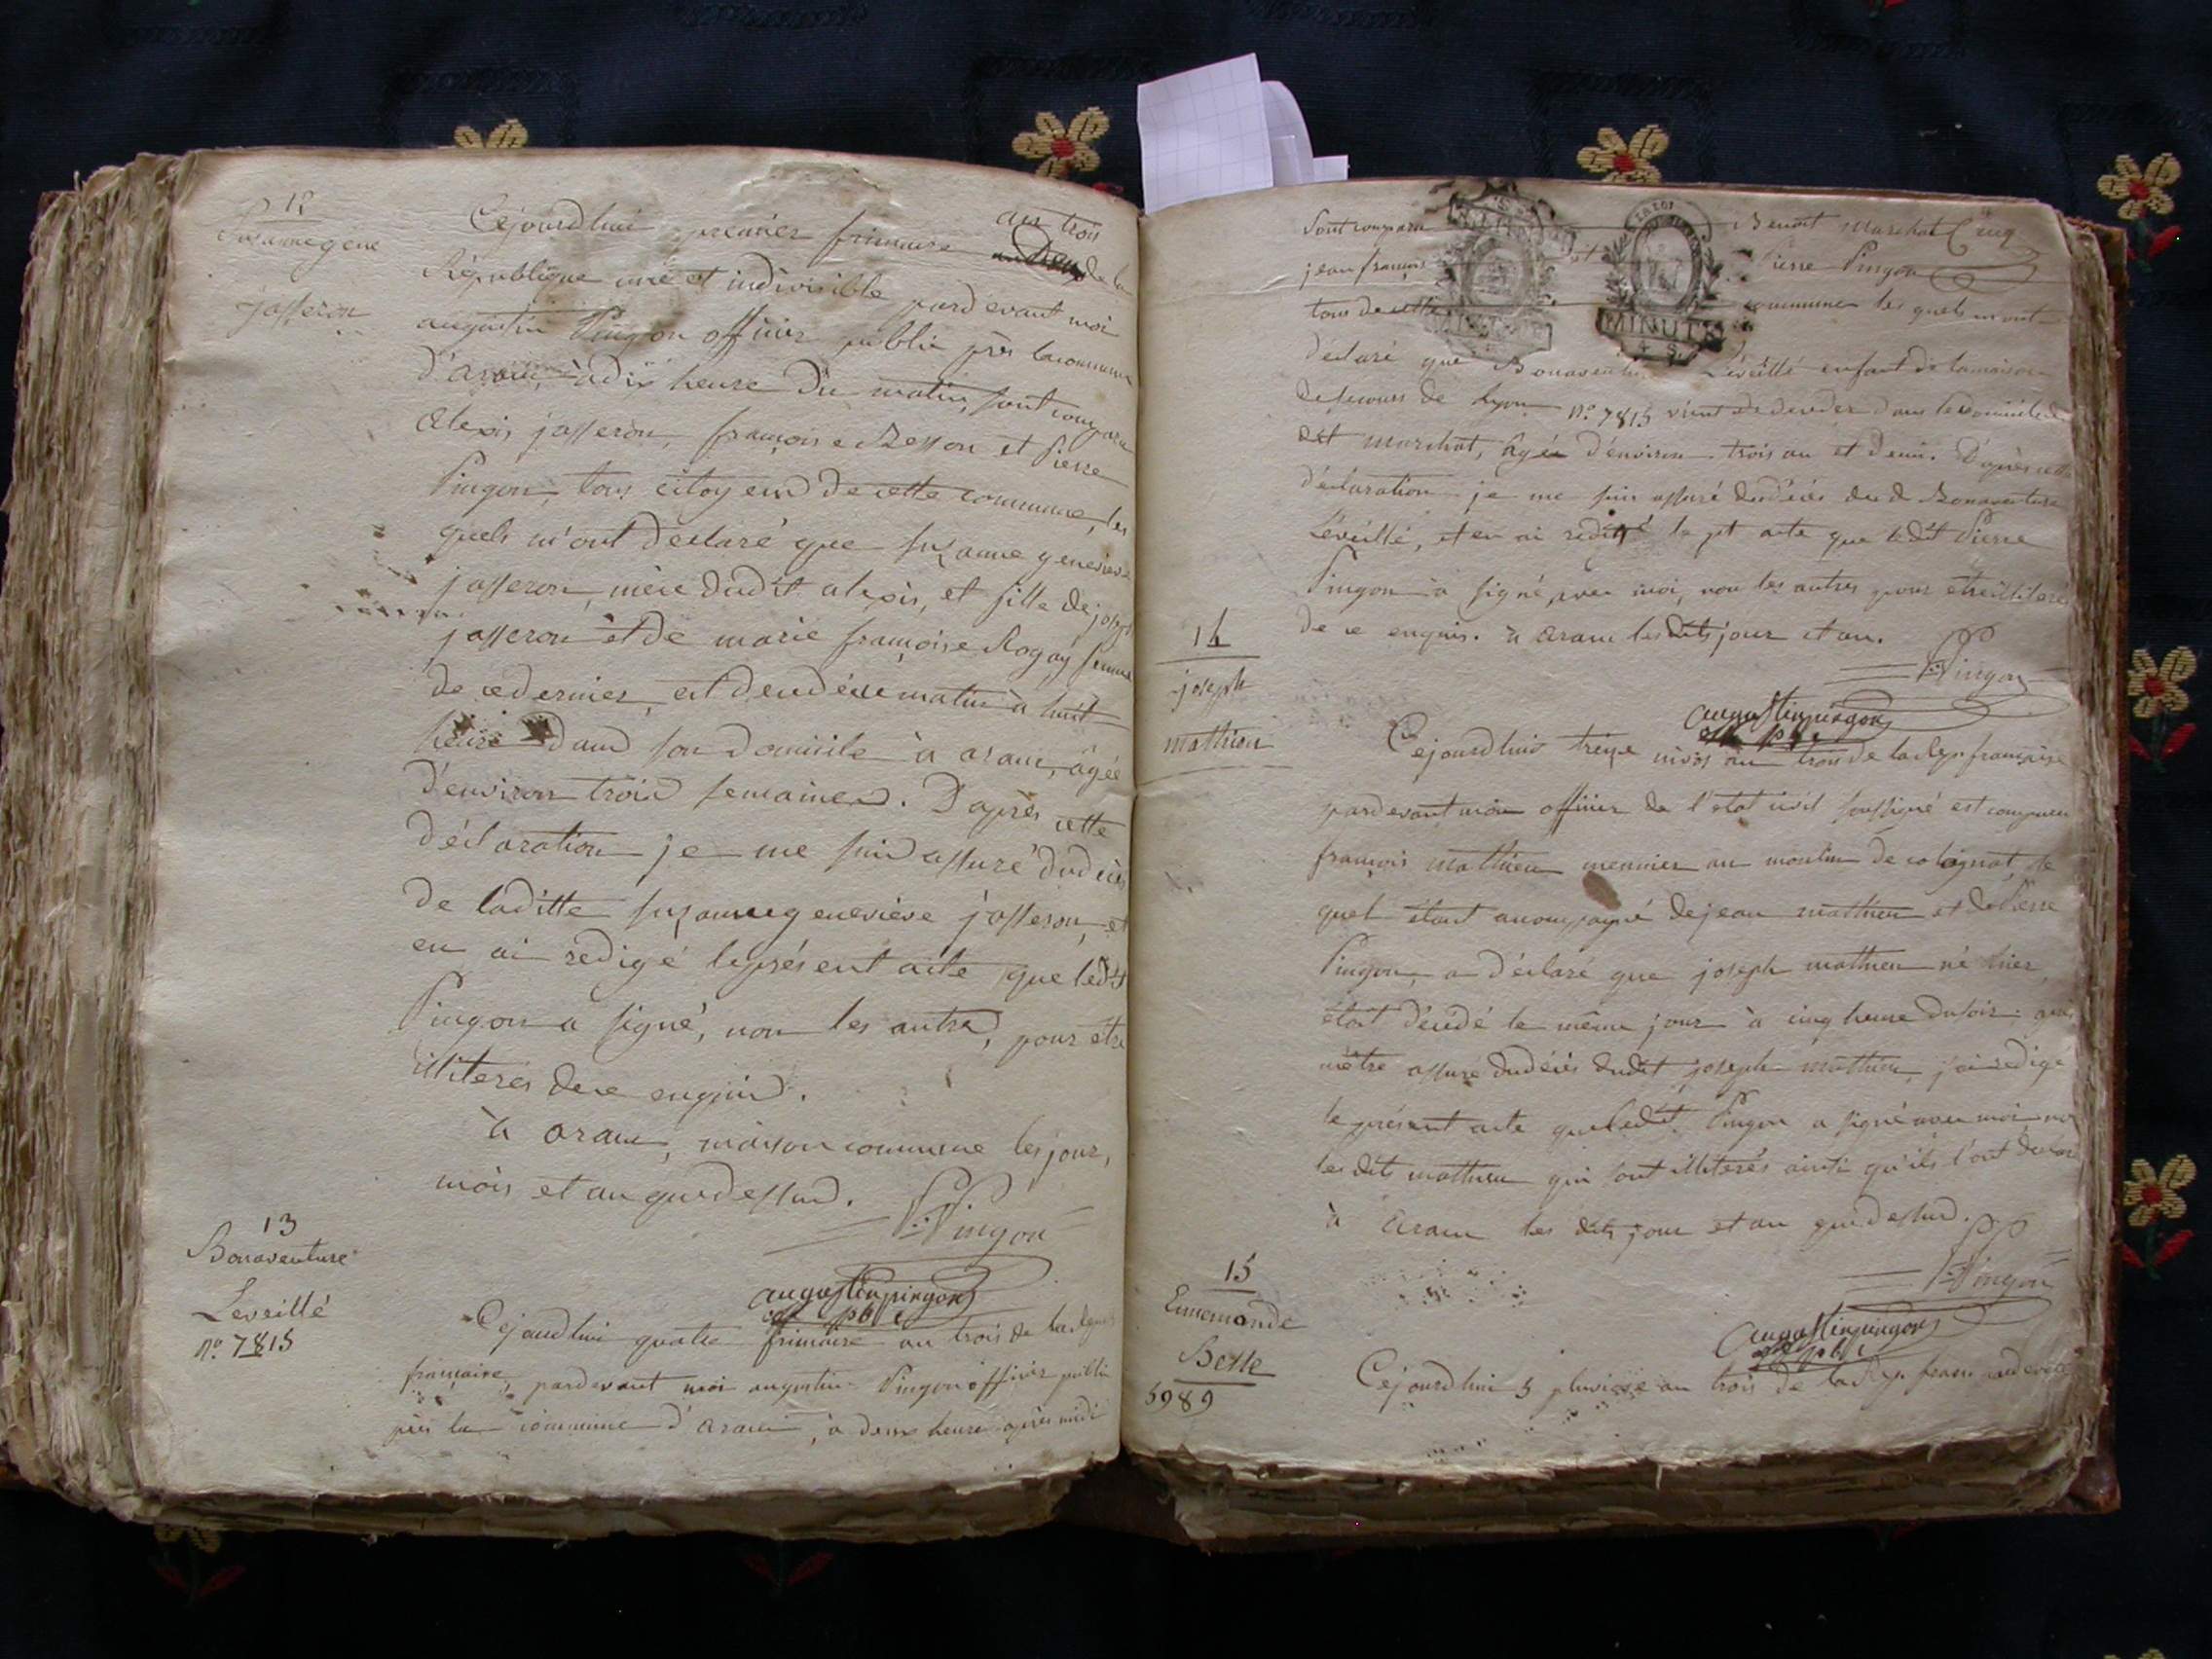 12
Suzanne gene
jasseron
Cejourd'hui premier frimaire an trois de la
République une et indivisible pardevant moi
augustin Pingon officier public près la commune
d'aranc, à dix heure du matin, sont comparu
alexis jasseron, françoise Besson et Pierre
Pingon, tous citoyens de cette commune, les
quels m'ont déclaré que suzanne genevieve
jasseron, dudit alexis, et fille de joseph
jasseron et de marie françoise Rogay femme
de ce dernier, est décédée ce matin à huit
heure dans son domicile à aranc, âgée
d'environ trois semaines. D'après cette
déclaration je me suis assuré du décès
de laditte suzanne geneviève jasseron, et
en ai redigé le présent acte, que ledit
Pingon a signé, non les autres, pour être
illiterés de ce enquis.
à aranc, maison commune les jour,
mois et an que dessus.
P: Pingon
augustin pingon
13
Bonaventure
Leveillé
n° 7815
Cejourd'hui quatre frimaire an trois de la Repu
française, pardevant moi augustin Pingon officier public
près la commune d'aranc, à deux heure après midi
sont comparu Benoit marchat
jean françois et Pierre Pingon
tous de cette commune les quels m'ont
déclaré que Bonaventure Léveillé enfant de la maison
de secours de Lyon n° 7815 vient de décéder dans le domicile
dudit marchat, âgé d'environ trois an et demi. D'après cette
déclaration je me suis assuré du décès dud Bonaventure
Léveillé, et en ai redigé le pt acte que ledit Pierre
Pingon à signé avec moi, non les autres pour être illiterés
de ce enquis. à aranc les dits jour et an.
P: Pingon
augustin pingon
14
joseph
mathieu
Cejourd'hui treize nivôs an trois de la Rep. française
pardevant moi officier de l'etat civil soussigné est comparu
françois mathieu meunier au moulin de colognat, le
quel étant accompagné de jean mathieu et de Pierre
Pingon, a déclaré que joseph mathieu né hier
étoit décédé le même jour à cinq heure du soir; après
m'être assuré du décès dudit joseph mathieu, j'ai redigé
le présent acte que ledit Pingon a signé avec moi non
les dits mathieu qui sont illiterés ainsi qu'ils l'ont déclaré
à aranc les dits jour et an que dessus.
P: Pingon
augustin pingon
15
Ennemonde
Belle
5989
Cejourd'hui 5 pluviose an trois de la Rep. franc. pardevant
MINUTE